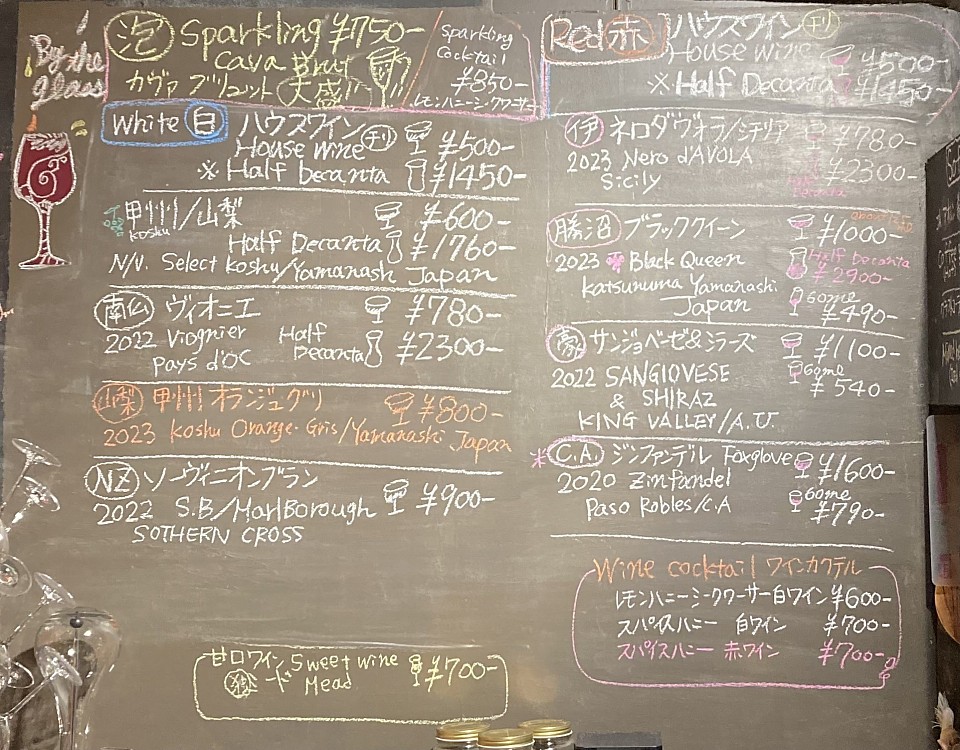 By the
glass
泡 Sparkling ¥750-
Cava Brut
カヴァ ブリュット 大盛!!
Sparkling
Cocktail
¥850-
レモンハニーシークワーサー
White 白 ハウスワイン チリ ¥500-
House wine
※ Half Decanta ¥1450-
甲州/山梨 ¥600-
Koshu
Half Decanta ¥1760-
N/V. Select Koshu/Yamanash Japan
南仏 ヴィオニエ ¥780-
2022 Viognier Half
Pays d'OC Decanta ¥2300-
山梨 甲州 オランジュグリ ¥800-
2023 Koshu Orange-Gris/Yamanashi Japan
NZ ソーヴィニオンブラン
2022 S.B/Marlborough ¥900-
SOTHERN CROSS
甘口ワイン Sweet wine ¥700-
ミード Mead
Red 赤 ハウスワイン チリ
House wine ¥500-
※ Half Decanta ¥1450-
伊 ネロダヴォラ/シチリア ¥780-
2023 Nero d'AVOLA ¥2300-
Sicily
勝沼 ブラッククイーン ¥1000-
2023 Black Queen Half Decanta
¥2900-
Katsunuma Yamanashi
Japan 60me
¥490-
豪 サンジョベーゼ&シラーズ ¥1100-
2022 SANGIOVESE 60me
¥540-
& SHIRAZ
KING VALLEY/A.U.
C.A. ジンファンデル Foxglove ¥1600-
2020 Zinfandel 60me
Paso Robles/C.A ¥790-
Wine cocktail ワインカクテル
レモンハニーシークワーサー白ワイン ¥600-
スパイスハニー 白ワイン ¥700-
スパイスハニー 赤ワイン ¥700-